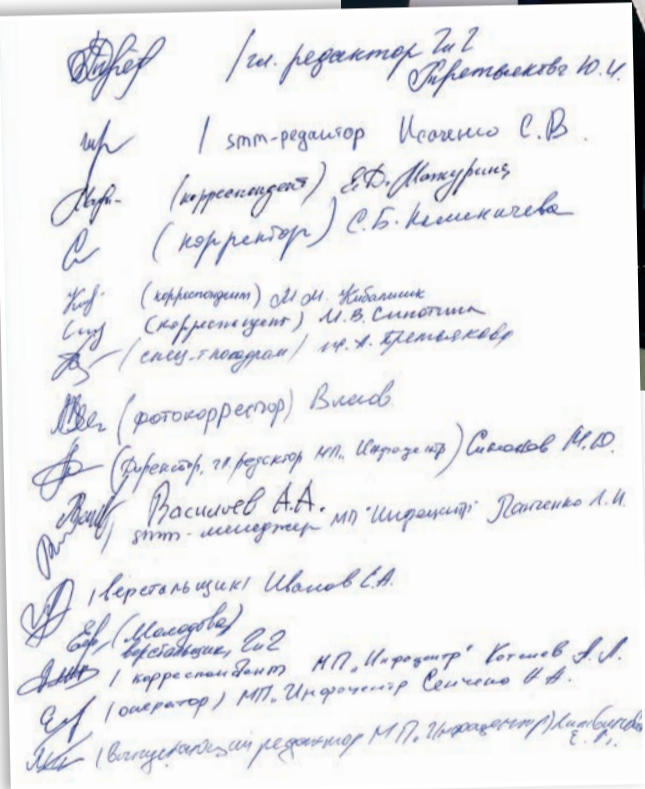 / гл. редактор ГиГ
Третьякова Ю.И.
/ smm-редактор Исаченко С.В.
(корреспондент) Е.Д. Мажурина
(корректор) С.Б.
(корреспондент) М.М. Кибальник
(корреспондент) М.В. Сипотина
/ Третьякова
(фотокорректор) Власов
(Директор, гл. редактор МП „Инфоцентр") Симонов М.Ю.
Васильев А.А.
/ smm-менеджер МП "Инфоцентр" Панченко Л.И.
/ верстальщик / Иванов С.А.
(Молодова)
верстальщик, ГиГ
/ корреспондент МП „Инфоцентр" Котенев А.Л.
/ оператор) МП „Инфоцентр Сенченко Н.А.
(Выпускающий редактор МП „Инфоцентр)